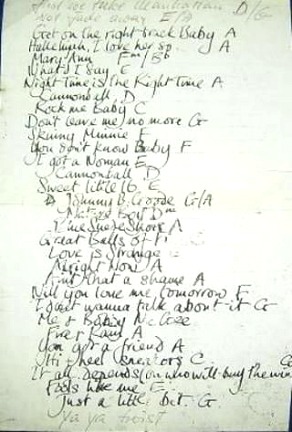 First we take Manhattan D/G
Not fade away E/A
Get on the right track Baby A
Hallelujah, I love her so A
Mary Ann Fm/Bb
What'd I say E
Night Time is the Right Time A
Cannonball D
Rock me Baby C
Don't leave me no more G
Skinny Minnie F
You don't know Baby F
I got a Woman E
Cannonball D
Sweet little 16 E
Johnny B. Goode G/A
Nature Boy Dm
Blue Suede Shoes A
Great Balls of
Love is Strange
Alright Now A
Aint that a shame A
Will you love me tomorrow F
I don't wanna talk about it G
Me & Bobby McGee
A
You got a friend A
Hi heel sneakers C
It all depends (on who will buy the wine
Fools like me E
Just a little bit G
Ya ya twist